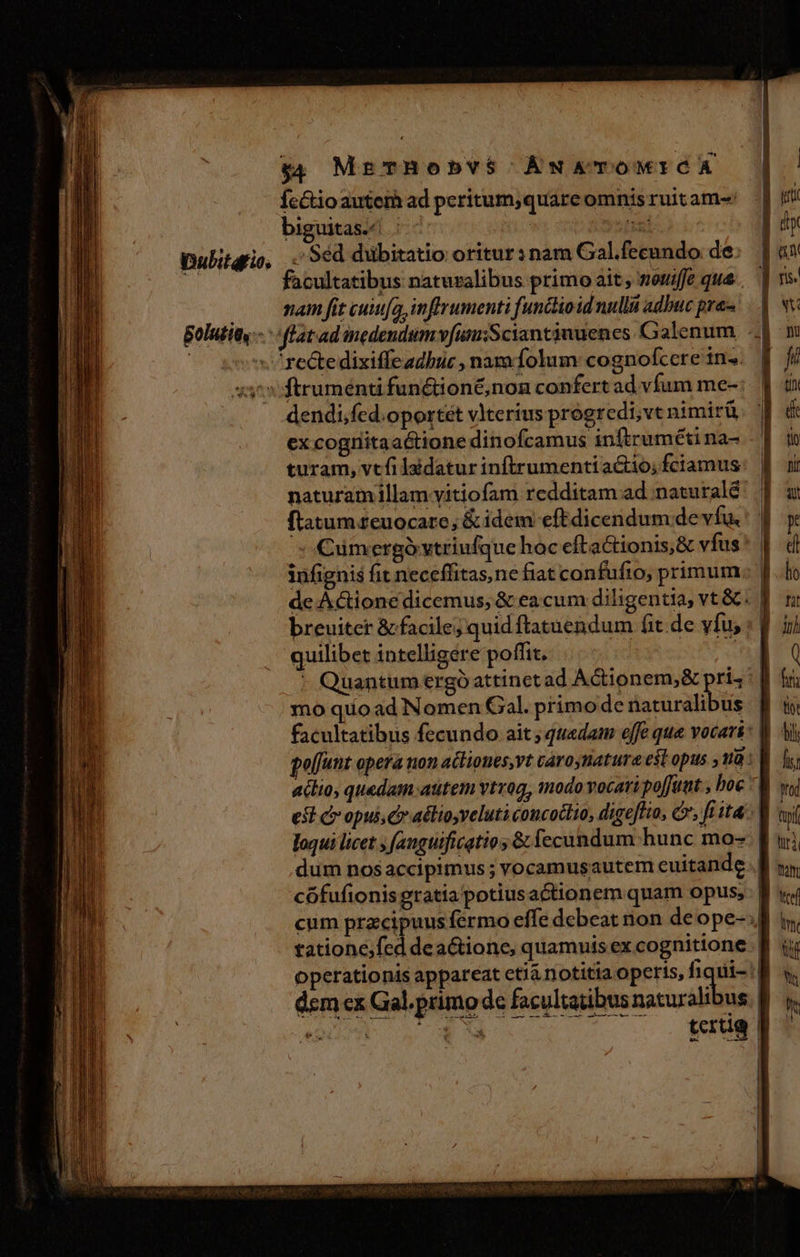 54 METHODVS ANATOMICA
ſectio autem ad peritum, quare omnis ruit am-
biguitas.
Dubitatio. Sed dubitatio oritur: nam Gal. ſecundo de
facultatibus naturalibus primo ait, nouiſſe quā-
nam fit cuiuſq, inſtrumenti functio id nullā adhuc præ-
Solutio. ſtat ad medendum vſum: Sciant inuenes Galenum
recte dixiſſe adhuc, nam ſolum cognoſcere in-
ſtrumenti functionē, non confert ad vſum me-
dendi, ſed oportet vlterius progredi, vt nimirū
ex cognita actione dinoſcamus inſtrumēti na-
turam, vt ſi lædatur inſtrumenti actio, ſciamus
naturam illam vitioſam redditam ad naturalē
ſtatum reuocare, & idem eſt dicendum de vſu.
Cum ergò vtriuſque hoc eſt actionis, & vſus
inſignis fit neceſſitas, ne fiat confuſio, primum
de Actione dicemus, & ea cum diligentia, vt &
breuiter & facile, quid ſtatuendum ſit de vſu,
quilibet intelligere poſſit.
Quantum ergò attinet ad Actionem, & pri-
mo quo ad Nomen Gal. primo de naturalibus
facultatibus ſecundo ait, quædam eſſe quæ vocari
poſſunt opera non actiones, vt caro, natura est opus, nō
actio, quædam autem vtroq, modo vocari poſſunt, hoc
est & opus, & actio, veluti concoctio, digeſtio, &, ſi ita
loqui licet, ſanguificatio, & ſecundum hunc mo-
dum nos accipimus; vocamus autem euitandę
cōfuſionis gratia potius actionem quam opus,
cum præcipuus ſermo eſſe debeat non de ope-
ratione, ſed de actione, quamuis ex cognitione
operationis appareat etiā notitia operis, ſiqui-
dem ex Gal. primo de facultatibus naturalibus
tertio